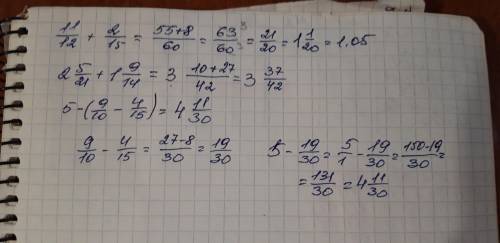 11/12 + 2/15 = 55+8/60 = 63³/60³ = 21/20 = 1 1/20 = 1.05
2 5/21 + 1 9/14 = 3 10+27/42 = 3 37/42
5-(9/10 - 4/15) = 4 11/30
9/10 - 4/15 = 27-8/30 = 19/30
5 - 19/30 = 5/1 - 19/30 = 150-19/30 =
= 131/30 = 4 11/30